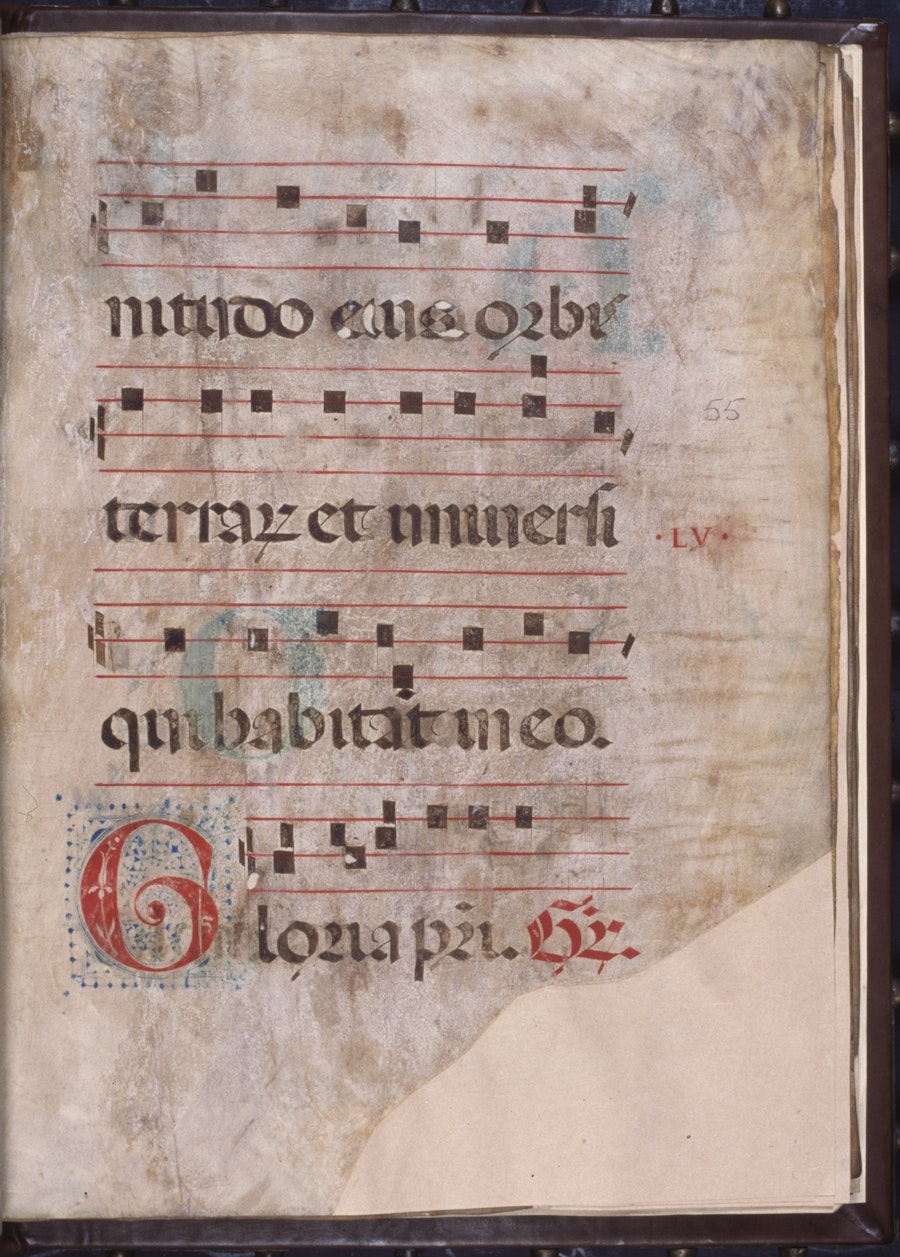 nitudo eius orbis
55
terrarꝝ et uniuersi
·LV·
qui habitāt in eo.
Gloria pr̄i.